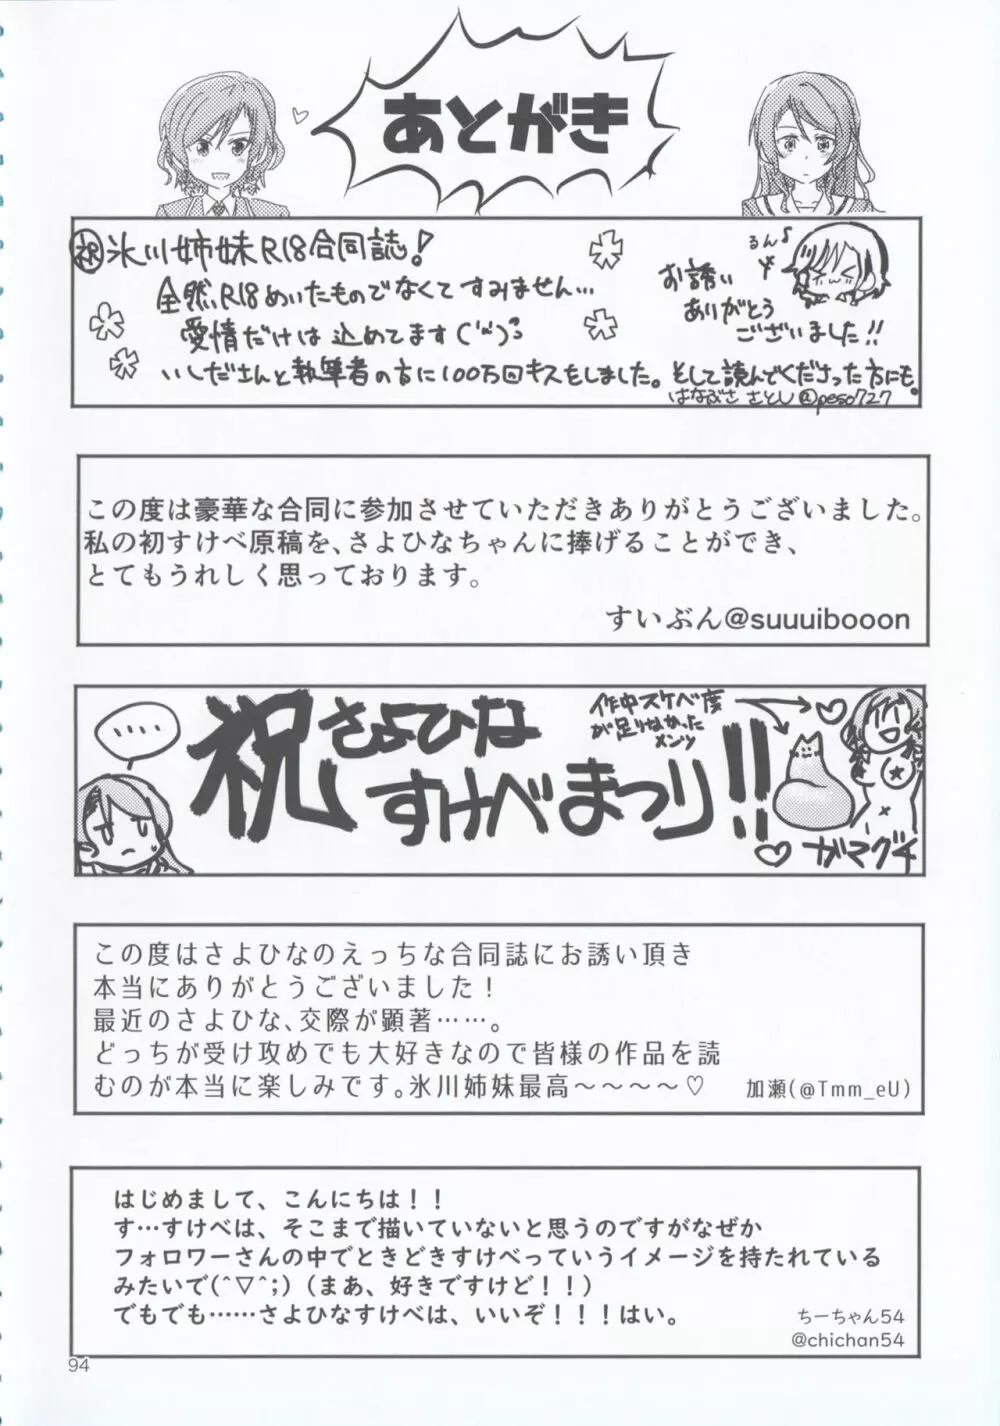 あとがき
㊗氷川姉妹R18合同誌!
全然、R18めいたものでなくてすみません…
愛情だけは込めてます('ω')
いしださんと執筆者の方に100万回キスをしました。そして読んでくださった方にも。
るん♪
お誘い
ありがとう
ございました!!
はなぶさ さとし@peso727
この度は豪華な合同に参加させていただきありがとうございました。
私の初すけべ原稿を、さよひなちゃんに捧げることができ、
とてもうれしく思っております。
すいぶん@suuuibooon
・・・・
祝さよひな
すけべまつり!!
作中スケベ度
が足りなかった
メンツ
♡ガマグチ
この度はさよひなのえっちな合同誌にお誘い頂き
本当にありがとうございました!
最近のさよひな、交際が顕著……。
どっちが受け攻めでも大好きなので皆様の作品を読
むのが本当に楽しみです。氷川姉妹最高〜〜〜〜♡
加瀬(@Tmm_eU)
はじめまして、こんにちは!!
す…すけべは、そこまで描いていないと思うのですがなぜか
フォロワーさんの中でときどきすけべっていうイメージを持たれている
みたいで(^▽^;)(まあ、好きですけど!!)
でもでも……さよひなすけべは、いいぞ!!!はい。
ちーちゃん54
@chichan54
94